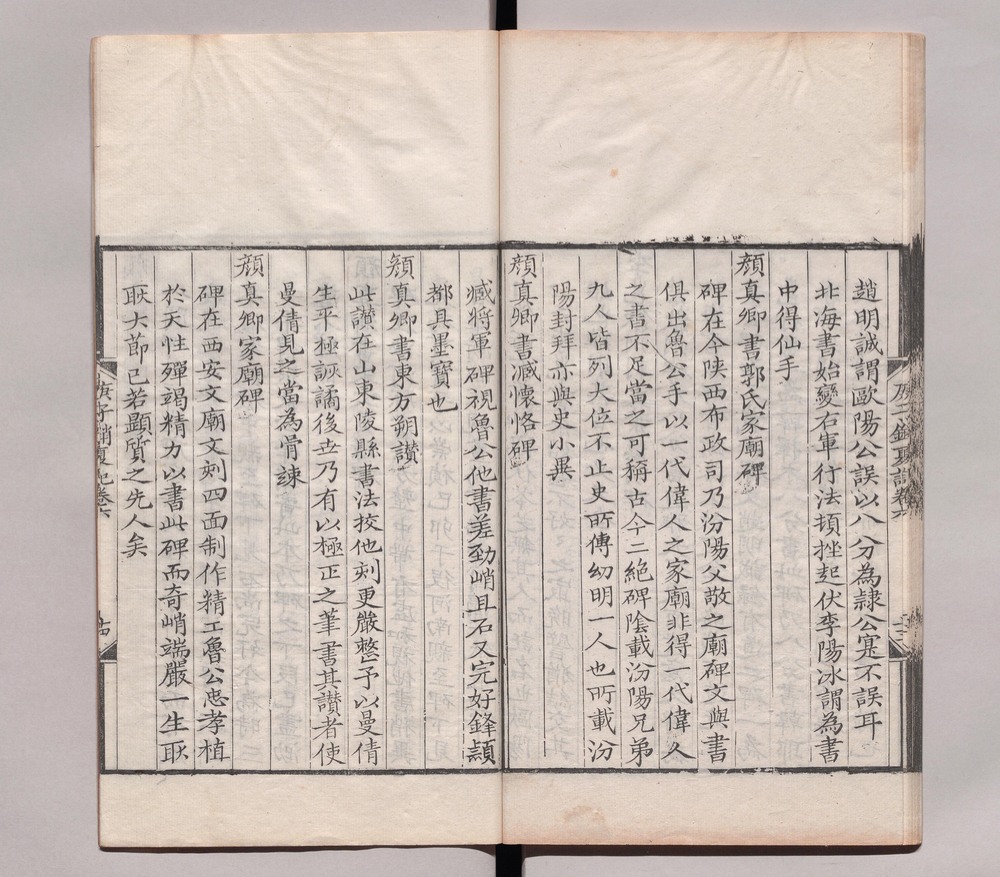 趙明誠謂歐陽公誤以八分為隷公寔不誤耳
北海書始變右軍行法頓挫起伏李陽冰謂為書
中得仙手
顔真卿書郭氏家廟碑
碑在今陕西布政司乃汾陽父敬之廟碑文與書
俱出魯公手以一代偉人之家廟非得一代偉人
之書不足當之可稱古今二絶碑陰載汾陽兄弟
九人皆列大位不止史所傳幼明一人也所載汾
陽封拜亦與史小異
顔真卿書臧懐恪碑
臧將軍碑視魯公他書差勁峭且石又完好鋒顯
都具墨寶也
顔真卿書東方朔讃
此讃在山東陵縣書法挍他刻更嚴整予以曼倩
生平極詼譎後世乃有以極正之筆書其讃者使
曼倩見之當為骨竦
顔真卿家廟碑
碑在西安文廟文刻四面制作精工魯公忠孝植
於天性殫竭精力以書此碑而奇峭端嚴一生耿
耿大節已若顯質之先人矣
庚子銷夏記卷六